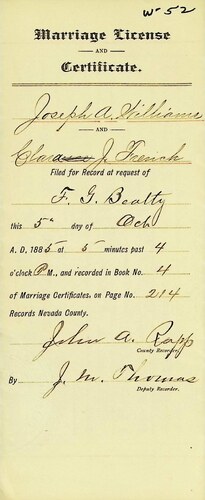 W-52
Marriage License
AND
Certificate.
Joseph A. Williams
AND
Clara J. French
Filed for Record at request of
F. G. Beatty
this 5" day of Oct
A. D. 1885 at 5 minutes past 4
o'clock P M., and recorded in Book No. 4
of Marriage Certificates, on Page No. 214
Records Nevada County.
John A. Rapp
County Recorder.
By J. M. Thomas
Deputy Recorder.